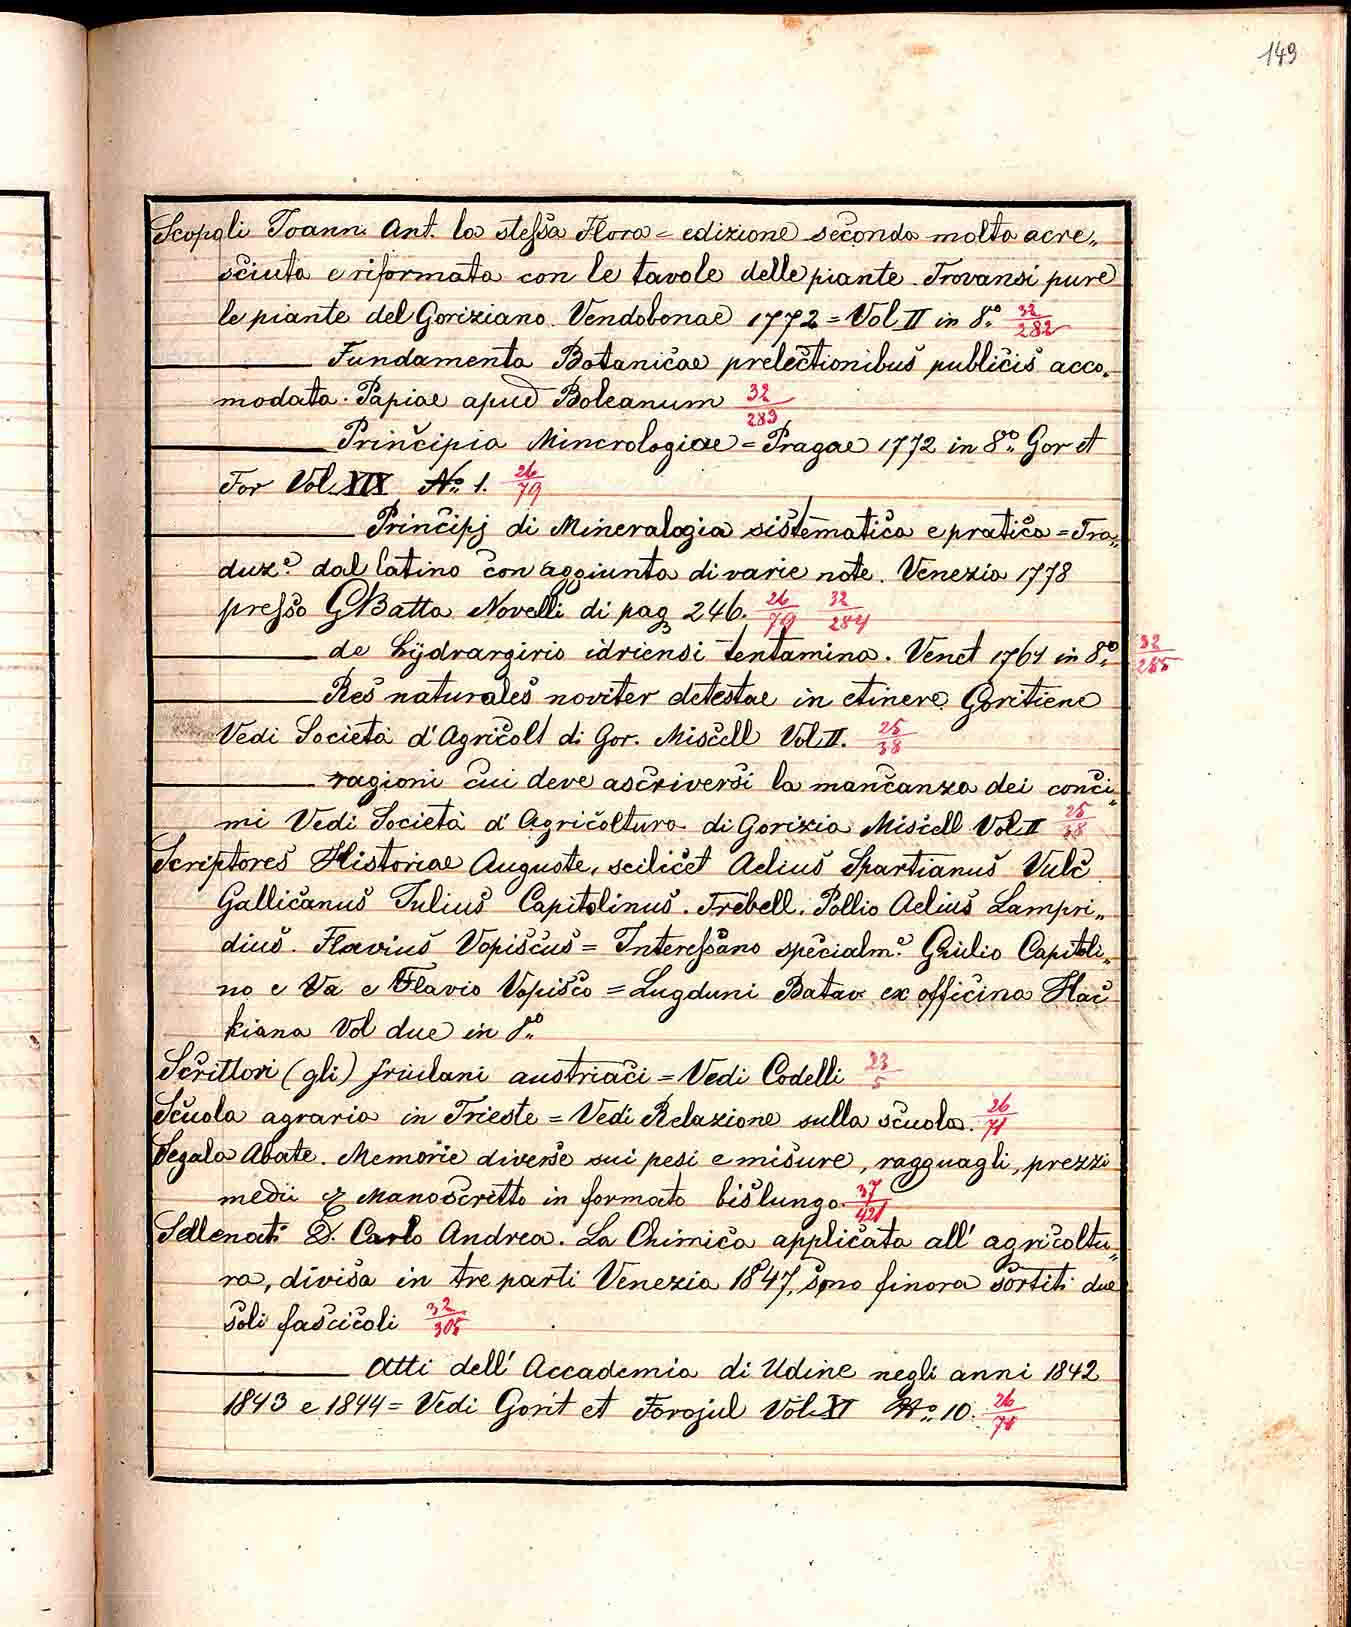 149
Scopoli Joann. Ant. la stessa Flora = edizione seconda molto acre„
sciuta e riformata con le tavole delle piante. Trovansi pure
le piante del Goriziano. Vendobonae 1772 = Vol. II in 8.° 32/282
Fundamenta Botanicae prelectionibus publicis acco„
modata. Papiae apud Boleanum 32/283
Principia Minerologiae = Pragae 1772 in 8.° Gor et
For Vol. XIX N.° 1. 26/79
Principj di Mineralogia sistematica e pratica = Tra„
duz.e dal latino con aggiunta di varie note. Venezia 1778
presso GBatta Novelli di pag 246. 26/79 32/284
de Hydrargirio idriensi tentamina. Venet 1761 in 8.° 32/285
Res naturales noviter detestae in etinere Goritiene
Vedi Società d'Agricolt di Gor. Miscell Vol. II. 25/38
ragioni cui deve ascriversi la mancanza dei conci„
mi Vedi Società d'Agricoltura di Gorizia Miscell Vol. II 25/38
Scriptores Historiae Auguste, scilicet Aelius Spartianus Vulc
Gallicanus Julius Capitolinus. Trebell. Pollio Aelius Lampri„
dius. Flavius Vopiscus = Interessano specialm.e Giulio Capitoli„
no e Va e Flavio Vopisco = Lugduni Batav. ex officina Hac
kiana Vol due in 8.°
Scrittori (gli) friulani austriaci = Vedi Codelli 23/5
Scuola agraria in Trieste = Vedi Relazione sulla scuola. 26/71
Segala Abate. Memorie diverse sui pesi e misure, ragguagli, prezzi
medii & Manoscritto in formato bislungo. 37/421
Sellenati D. Carlo Andrea. La Chimica applicata all' agricoltu„
ra, divisa in tre parti Venezia 1847, sono finora sortiti due
soli fascicoli 32/305
Atti dell' Accademia di Udine negli anni 1842
1843 e 1844 = Vedi Gorit et Forojul Vol. XI N.° 10. 26/71